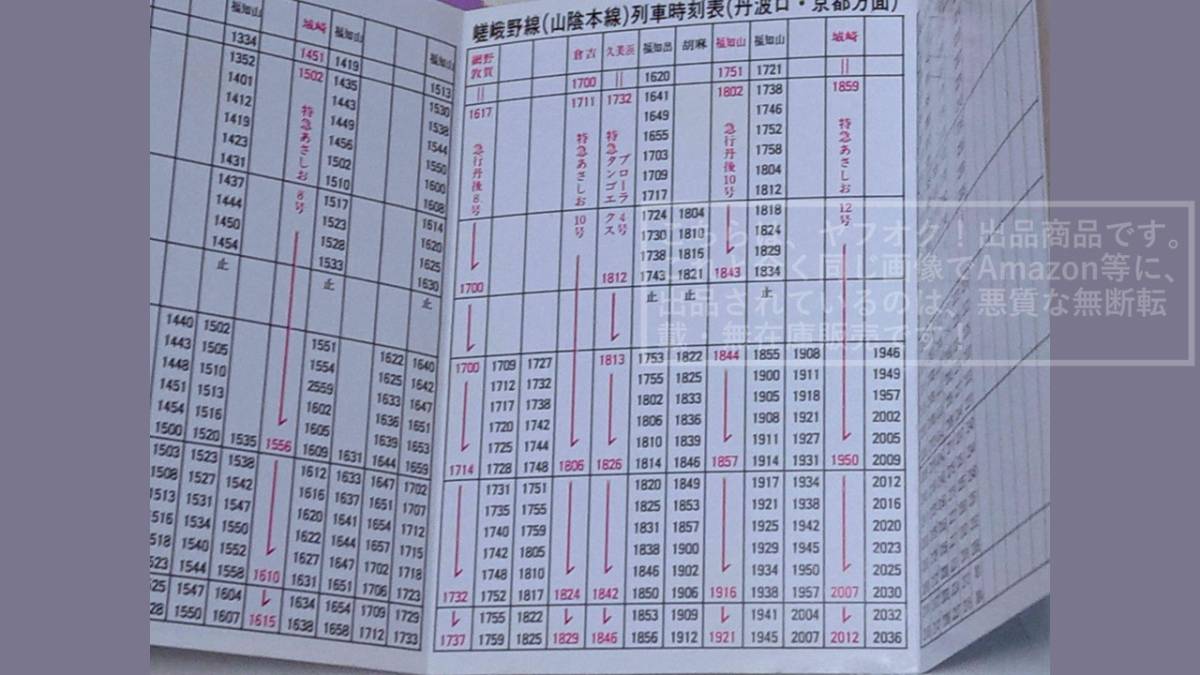 福知山 城崎 福知山 福知山
1334 1451 1419
1352 1502 1435 1513
1401 1443 1530
1412 1449 1538
1419 1456 1544
1423 1502 1550
1431 1510 1600
1437 1517 1608
1444 1523 1614
1450 1528 1620
1454 1533 1625
止 止 1630
止
特急あさしお8号
1440 1502 1551 1622 1640
1443 1505 1554 1625 1642
1448 1510 2559 1633 1647
1451 1513 1602 1636 1651
1454 1516 1605 1639 1653
1500 1520 1535 1556 1609 1631 1644 1659
1503 1523 1538 1612 1633 1647 1702
1508 1527 1542 1616 1637 1651 1707
1513 1531 1547 1620 1641 1654 1712
1516 1534 1550 1622 1644 1657 1715
1518 1540 1552 1627 1647 1702 1718
1544 1558 1610 1631 1651 1706 1723
1547 1604 1634 1654 1709 1729
1550 1607 1615 1638 1658 1712 1733
嵯峨野線(山陰本線)列車時刻表(丹波口・京都方面)
網野敦賀 倉吉 久美浜 福知山 胡麻 福知山 福知山 城崎
|| 1700 || 1620 1751 1721 ||
1617 1711 1732 1641 1802 1738 1859
1649 1746
1655 1752
1703 1758
1709 1804
1717 1812
急行丹後8号
特急あさしお10号
特急タンゴエクスプローラ4号
急行丹後10号
特急あさしお12号
1724 1804 1818
1730 1810 1824
1738 1815 1829
1700 1812 1743 1821 1843 1834
止 止 止
1700 1709 1727 1813 1753 1822 1844 1855 1908 1946
1712 1732 1755 1825 1900 1911 1949
1717 1738 1802 1833 1905 1918 1957
1720 1742 1806 1836 1908 1921 2002
1725 1744 1810 1839 1911 1927 2005
1714 1728 1748 1806 1826 1814 1846 1857 1914 1931 1950 2009
1731 1751 1820 1849 1917 1934 2012
1735 1755 1825 1853 1921 1938 2016
1740 1759 1831 1857 1925 1942 2020
1742 1805 1838 1900 1929 1945 2023
1748 1810 1846 1902 1934 1950 2025
1732 1752 1817 1824 1842 1850 1906 1916 1938 1957 2007 2030
1755 1822 1853 1909 1941 2004 2032
1737 1759 1825 1829 1846 1856 1912 1921 1945 2007 2012 2036
こちらは、ヤフオク！出品商品です。
く同じ画像でAmazon等に、
出品されているのは、悪質な無断転
載・無在庫販売です！